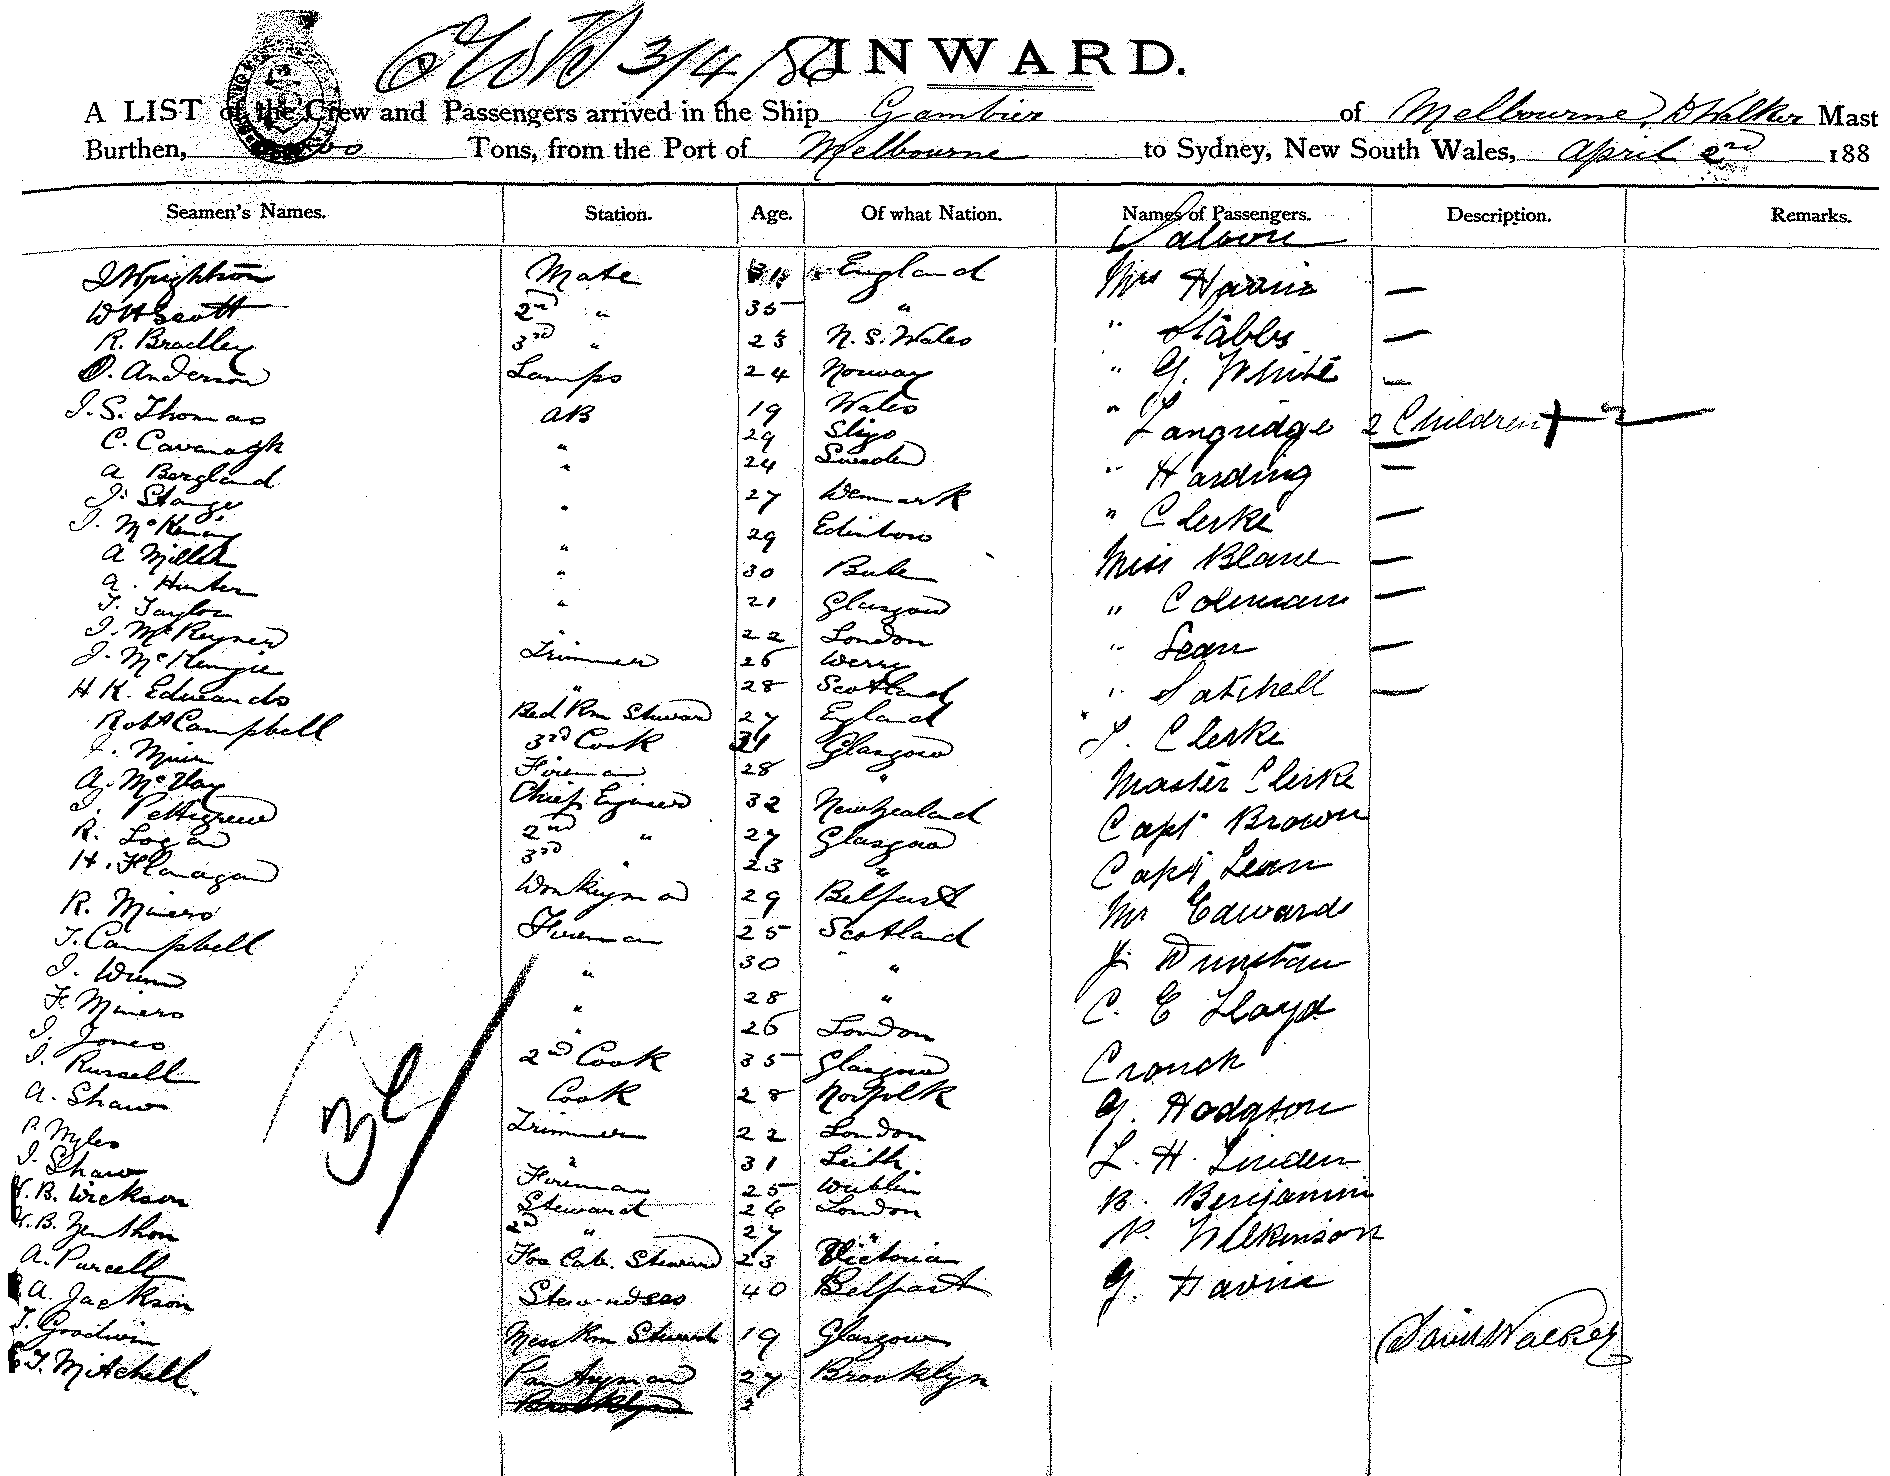 3/4/86 INWARD.
A LIST of the Crew and Passengers arrived in the Ship Gambier of Melbourne, D Walker Mast
Burthen, Tons, from the Port of Melbourne to Sydney, New South Wales, April 2nd 188
Seamen's Names. Station. Age. Of what Nation. Names of Passengers. Description. Remarks.
Saloon
J Wrightson Mate 31 England Mrs Harris —
W H Scott 2nd " 35 " " Stabbs —
R. Bradley 3rd " 23 N. S. Wales " G. White —
O. Anderson Lamps 24 Norway
J. S. Thomas AB 19 Wales " Langridge 2 Children + 2 —
C. Cavanagh " 29 Sligo
A Bergland " 24 Sweden " Harding —
J. Stange " 27 Denmark " Clerke —
J. McKenzie 29 Edinboro
A Miller " 30 Bute Miss Blane —
A. Hunter " 21 Glasgow " Coleman —
T. Taylor " 22 London
J. McRegner Trimmer 26 Derry " Lean —
J. McKenzie " 28 Scotland " Satchell —
H K. Edwards Bed Rm Steward 27 England
Robt Campbell 3rd Cook 31 Glasgow J. Clerke
J. Muir Fireman 28 " Master Clerke
A. McVay Chief Engineer 32 New Zealand
J. Pettigrew 2nd " 27 Glasgow Capt Brown
R. Logan 3rd " 23 " Capt Lean
H. Flanagan Donkeyman 29 Belfast Mr Edwards
R. Miners Fireman 25 Scotland
T. Campbell " 30 " J. Dunstan
J. Dunn " 28 " C. E Lloyd
F. Miners " 26 London
J. Jones 2nd Cook 35 Glasgow Crouch
J. Russell Cook 28 Norfolk G. Hodgson
A. Shaw Trimmer 22 London
P. Myles " 31 Leith. L. H. Linden
J. Shaw Fireman 25 Dublin
B. Dickson Steward 26 London B. Benjamin
B. Zenthon 2nd " 27 " N. Wilkinson
A. Purcell Fore Cab. Steward 23 Victoria
A. Jackson Stewardess 40 Belfast G. Davis
T. Goodwin Mess Rm Steward 19 Glasgow David Walker
T. Mitchell Pantryman 27 Brooklyn
Brooklyn 2